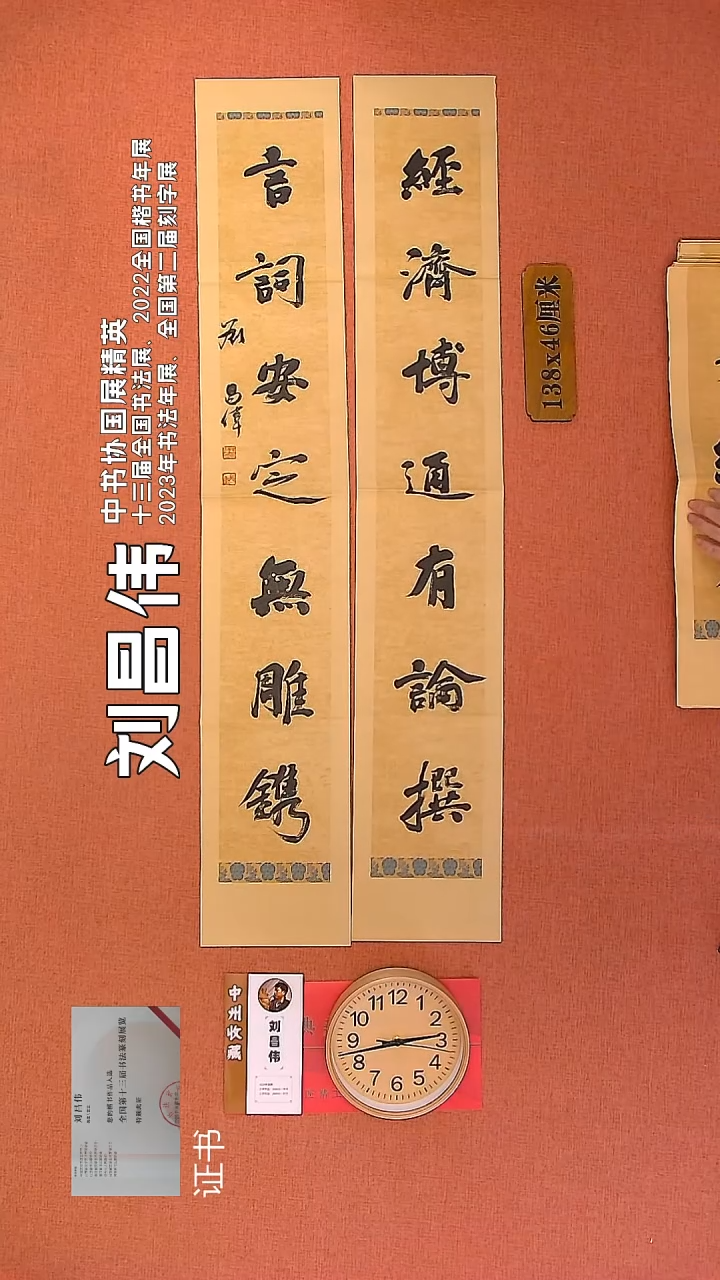 經濟博通有論撰
言詞安定無雕鐫
劉昌偉
138x46厘米
刘昌伟
中书协国展精英
十三届全国书法展、2022全国楷书年展
2023年书法年展、全国第二届刻字展
刘昌伟
12
1
2
3
4
5
6
7
8
9
10
11
刘昌伟
您的楷书作品入选
全国第十三届书法篆刻展览
特颁此证
证书